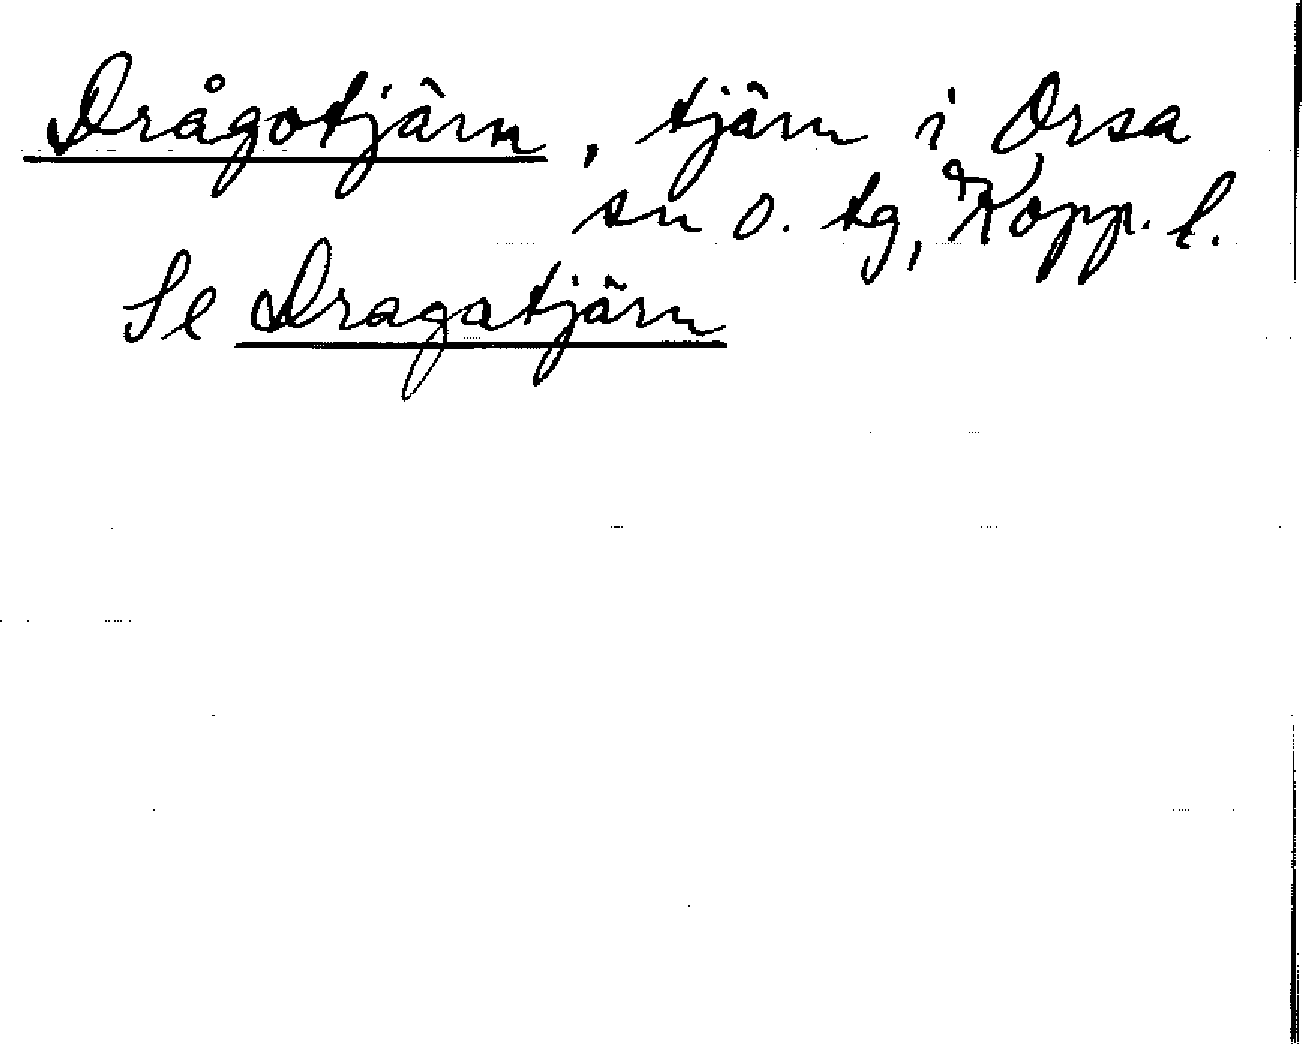 Drågotjärn, tjärn i Orsa
sn o. tg, Kopp. l.
Se Dragatjärn